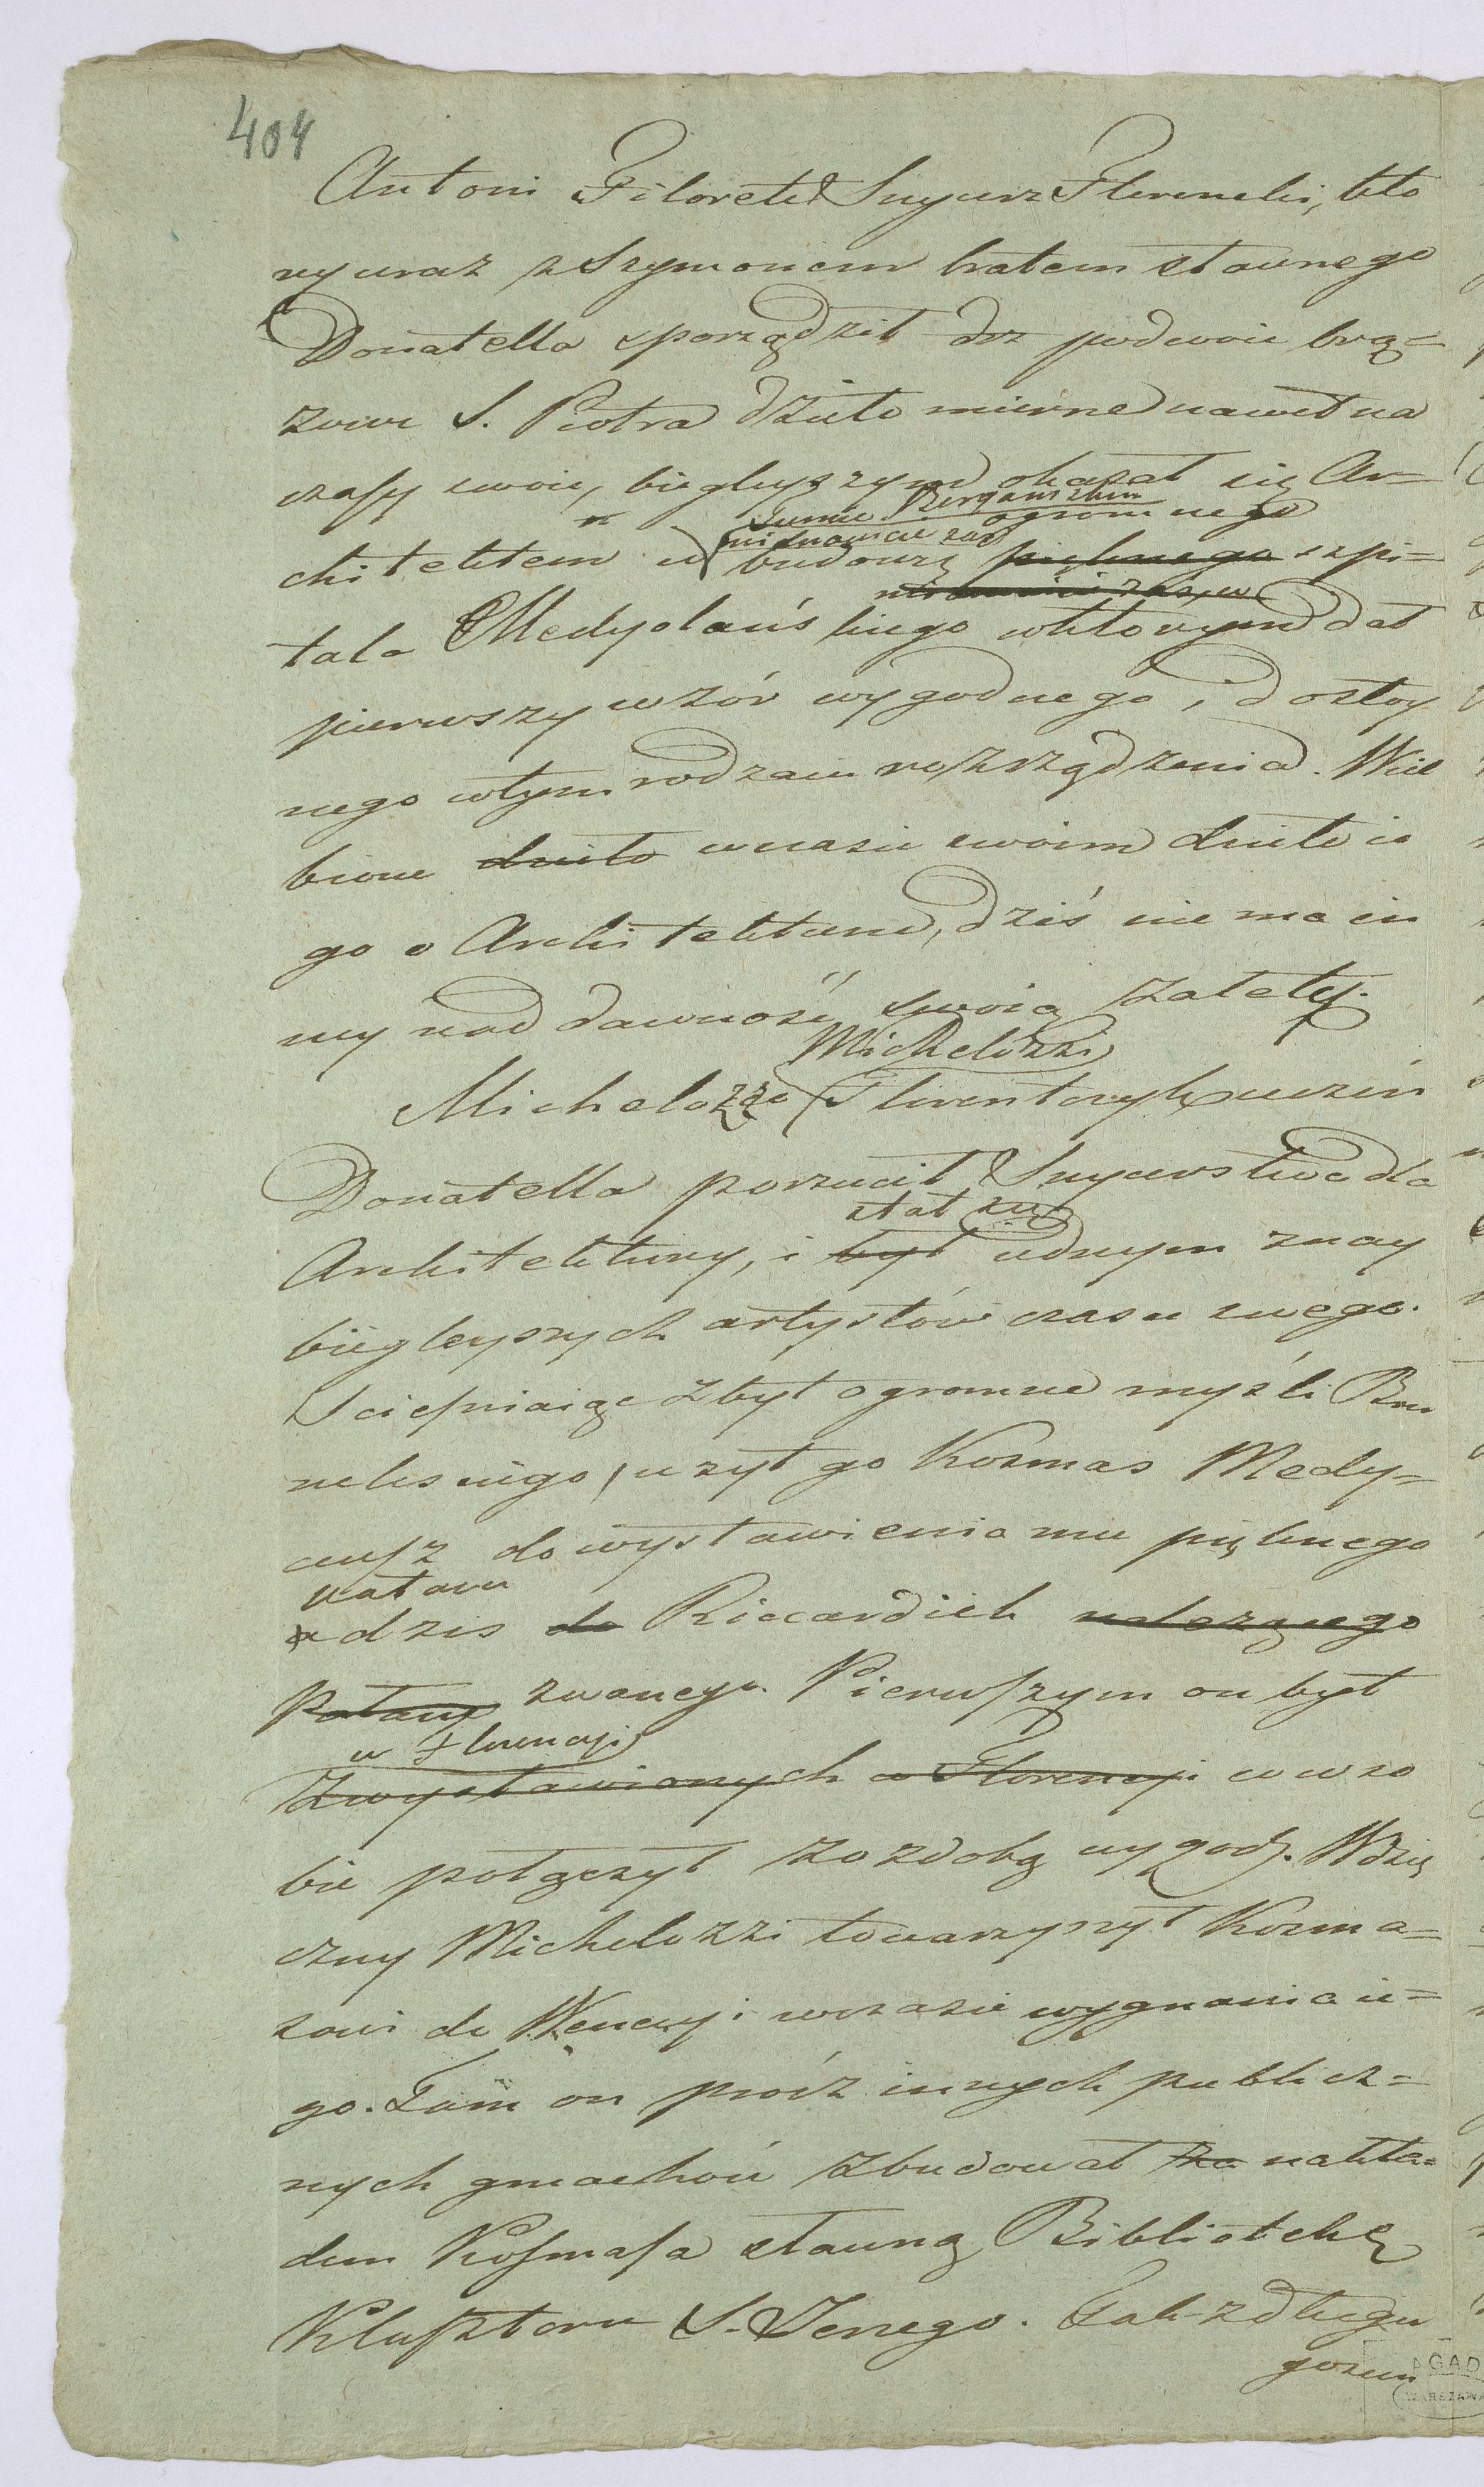 404
Antoni Filarete Snycerz Florencki, któ
ry wraz z Szymonem bratem sławnego
Donatella sporządził drz podwoie brą=
zowe S. Piotra dzieło mierne nawet na
czasy swoie, bieglyszym okazał się Ar=
Tumie Bergamskim
niemniey zaś ogromnego
chitektem w budowę pięknego szpi=
tala Medyolańskiego w którym dał
pierwszy wzór wygodnego, i dostoy
nego w tym rodzaiu rozrządzenia. Wiel
bione dzieło w czasie swoim dzieło ie
go o Architekturze, dziś nie ma in
ney nad dawność swoią zalety.
Michelozzi
Michelozzo Florentczyk uczeń
Donatella porzucił Snycerstwo dla
stał się
Architektury, i był iednym z nay
biegleyszych artystów czasu swego.
Sciesniaiąc zbyt ogromne myśli Bru
neleskiego, użył go Kosmas Medy=
ceusz do wystawienia mu pięknego
Pałacu
a dzis do Riccardich należącego
Pałacu zwanego. Pierwszym on był
w Florencyi
z wystawionych w Florencyi co w so
bie połączył z ozdobą wygodę. Wdzię
czny Michelozzi towarzyszył Kosma=
zowi do Wenecyi w czasie wygnania ie=
go. Tam on prócz innych publicz=
nych gmachów zbudował za nakła=
dem Kosmasa sławną Bibliotekę
Klasztoru S. Jerzego. Tak z długu
goszcz
AGAD
WARSZAWA